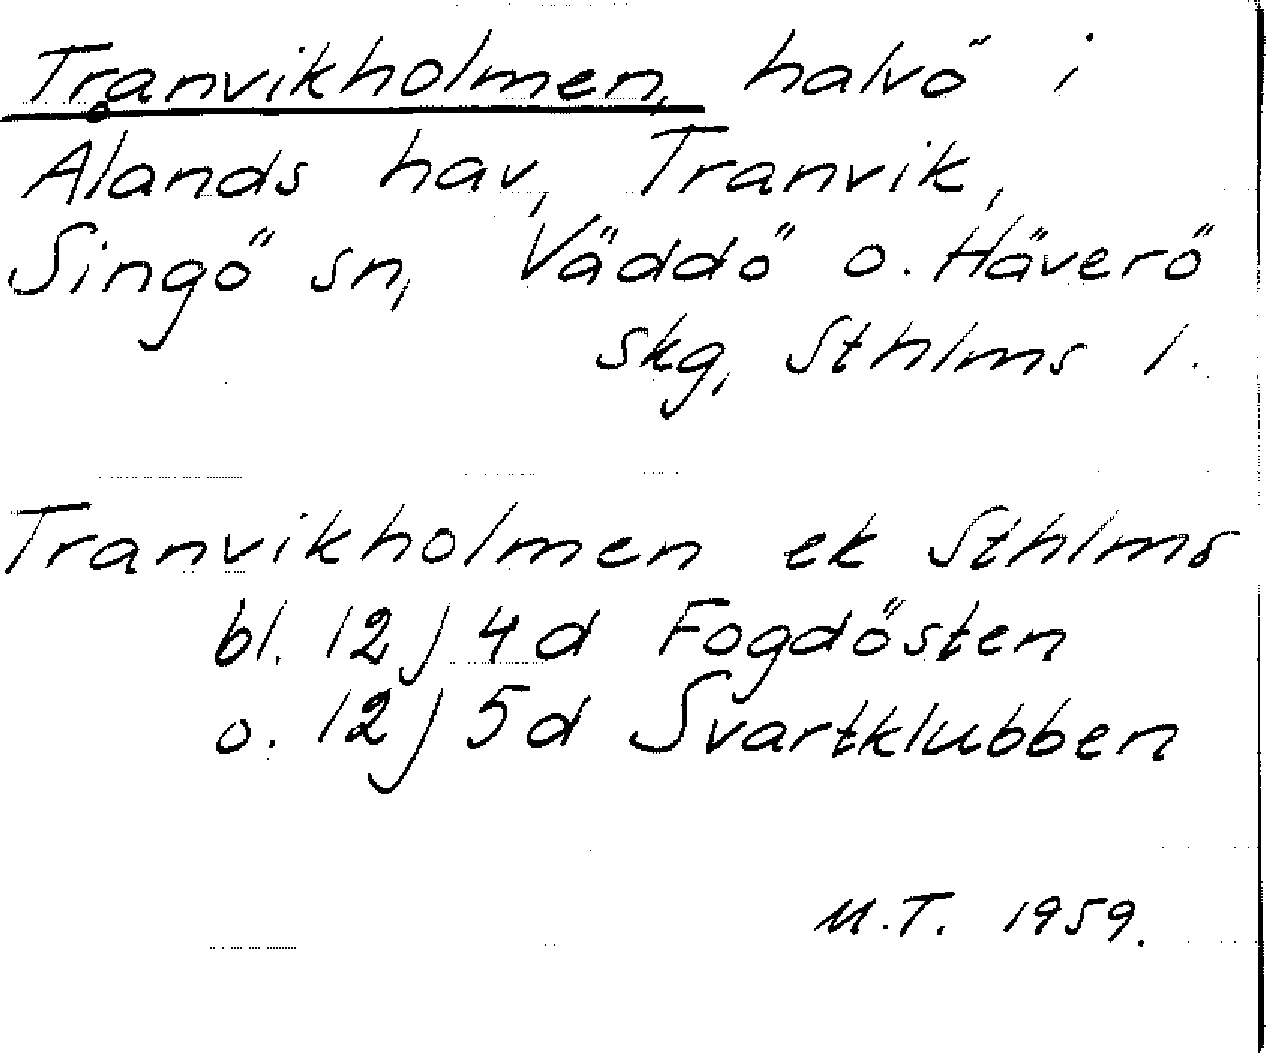 Tranvikholmen, halvö i
Ålands hav, Tranvik,
Singö sn, Väddö o. Häverö
skg, Sthlms l.
Tranvikholmen ek Sthlms
bl. 12 j 4 d Fogdösten
o. 12 j 5 d Svartklubben
M.T. 1959.